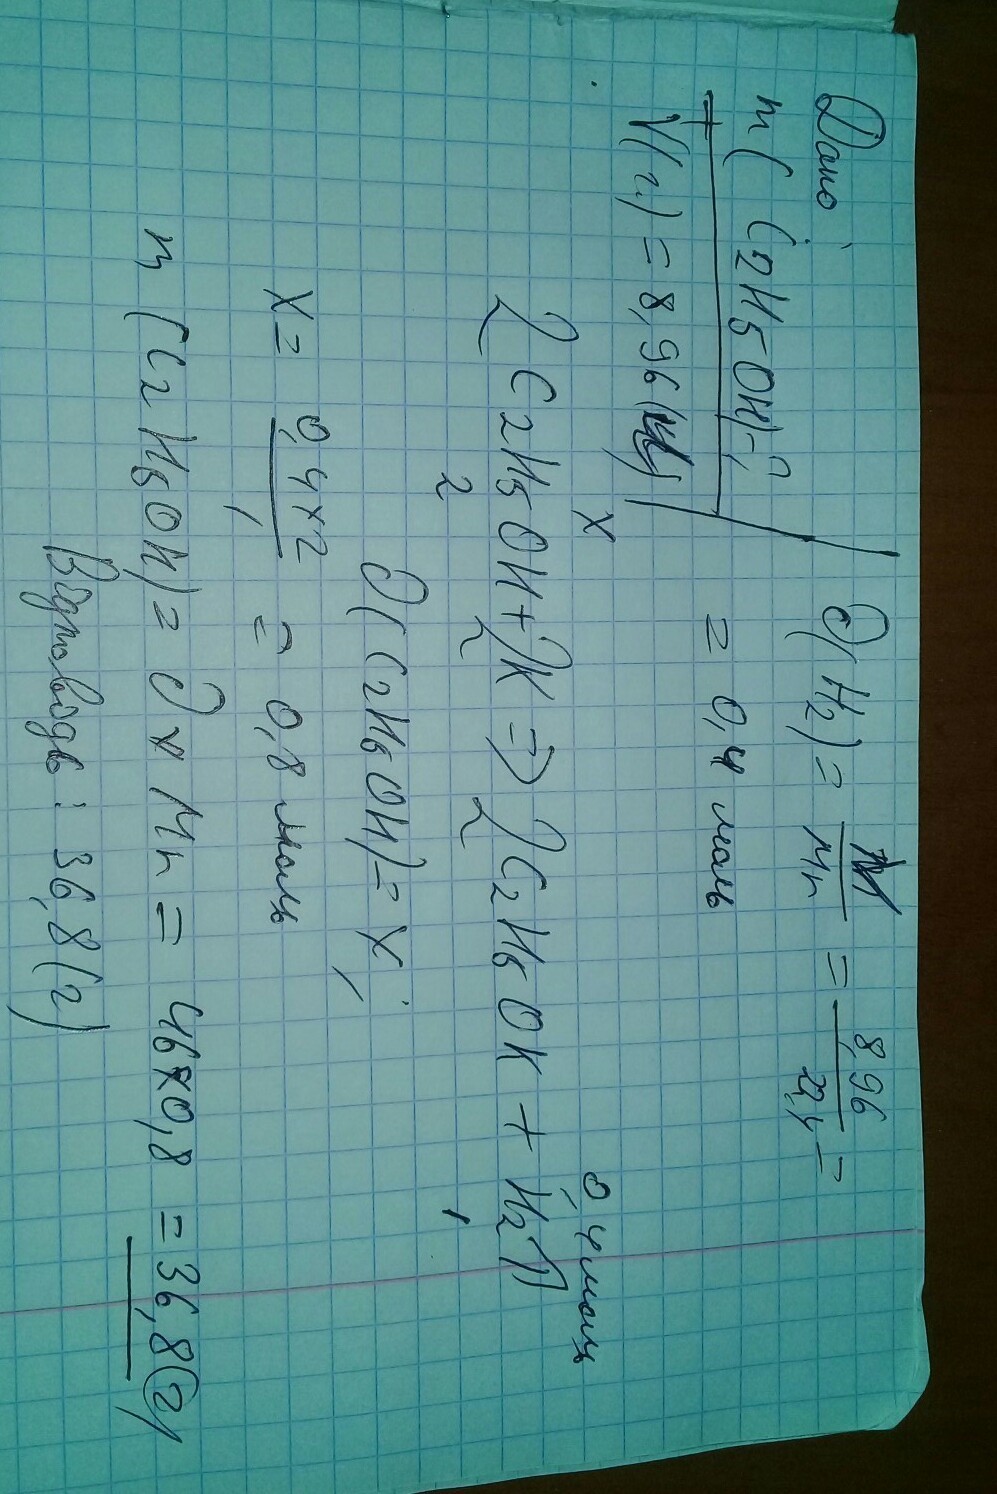 Дано
m(C2H5OH)-?
V(г) = 8,96(л)
∂(H2) = V/Mr = 8,96/22,4 =
= 0,4 моль
x 0,4 моль
2C2H5OH + 2K => 2C2H5OK + H2↑
2 2 2 1
∂(C2H5OH) = x;
x = 0,4×2/1 = 0,8 моль
m(C2H5OH) = ∂ × Mr = 46×0,8 = 36,8(г)
Відповідь: 36,8(г)